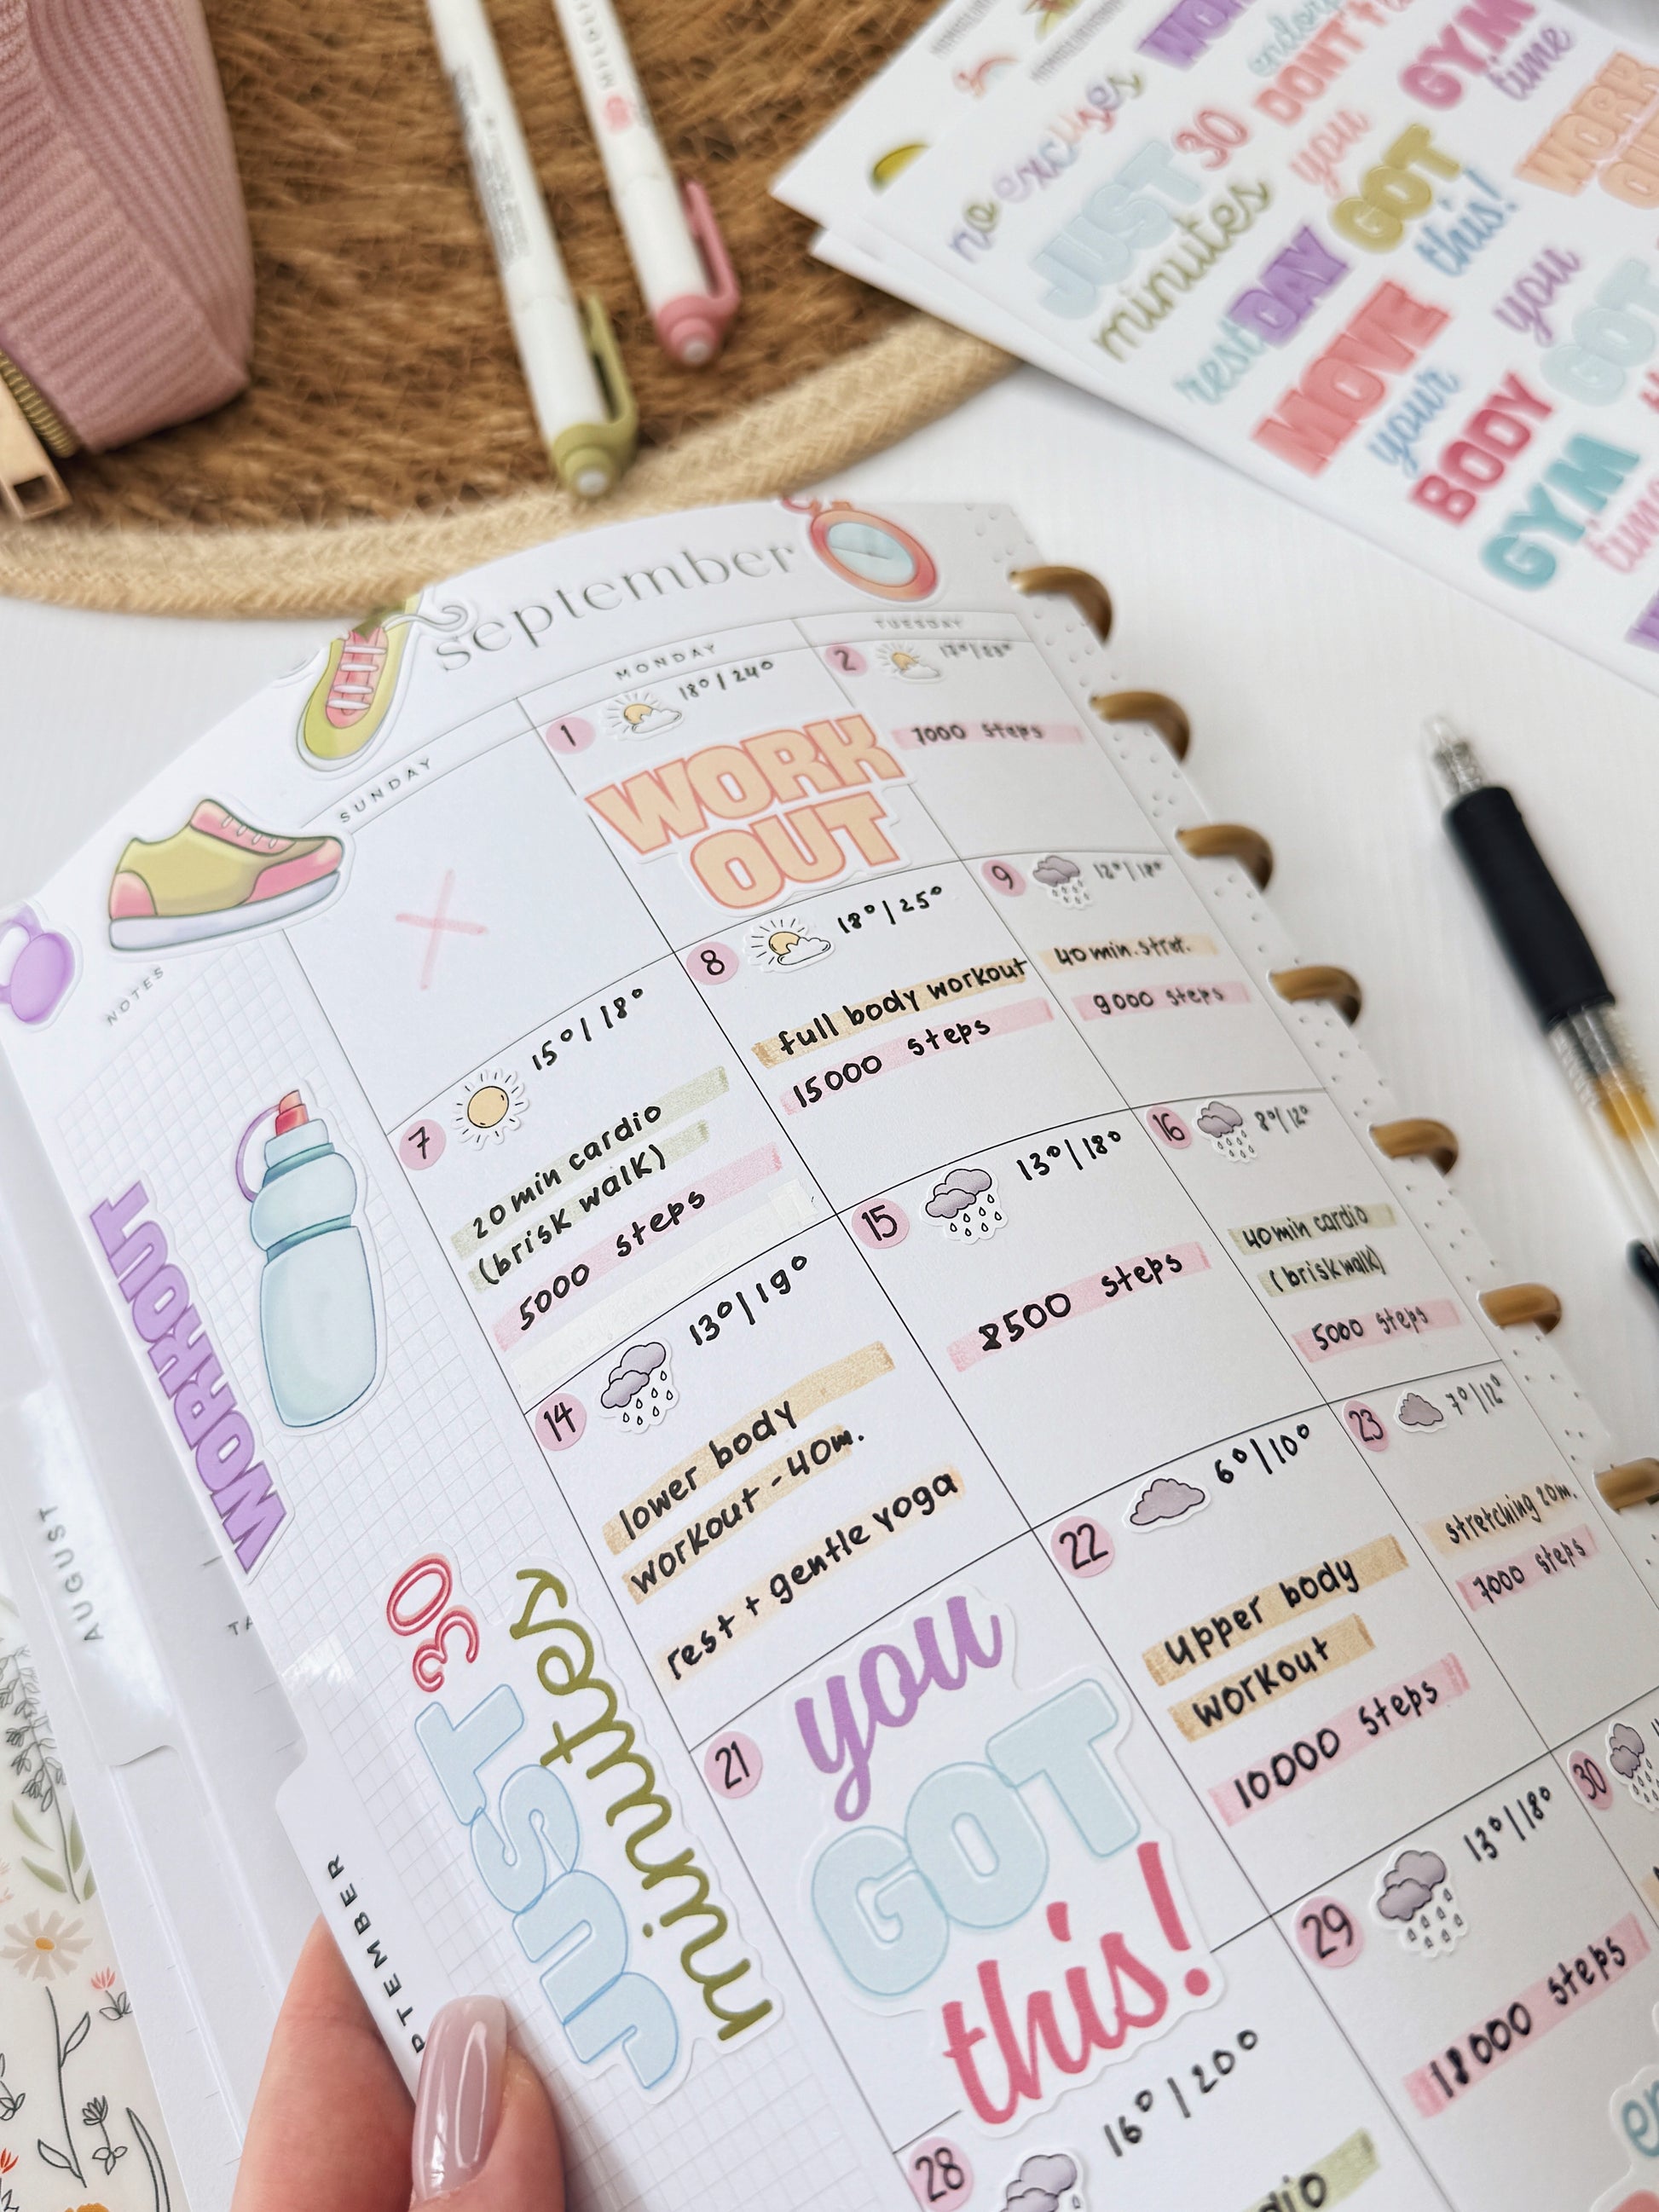 no excuses
JUST 30
minutes
rest DAY
MOVE
your
BODY
GYM
time
DON'T
you
GOT
this!
GYM
time
WORK
OUT
you
GOT
september
SUNDAY
MONDAY
TUESDAY
NOTES
1
18°/24°
WORK
OUT
2
7000 steps
7
15°/18°
20 min cardio
(brisk walk)
5000 steps
8
18°/25°
full body workout
15000 steps
9
12°/18°
40 min. stret.
9000 steps
14
13°/19°
lower body
workout - 40m.
rest + gentle yoga
15
13°/18°
8500 steps
16
8°/12°
40 min cardio
(brisk walk)
5000 steps
21
you
GOT
this!
22
6°/10°
upper body
workout
10000 steps
23
7°/12°
stretching 20m.
7000 steps
28
16°/20°
29
13°/18°
18000 steps
30
WORKOUT
JUST 30
minutes
AUGUST
PTEMBER